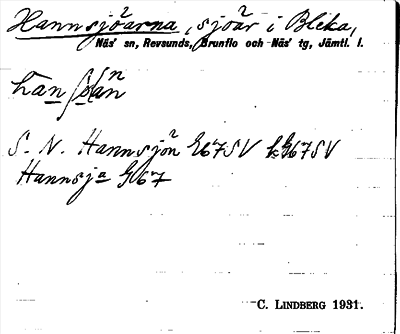 Hannsjöarna, sjöar i Bleka,
Näs' sn, Revsunds, Brunflo och Näs' tg, Jämtl. l.
S. N. Hannsjön G67SV k. G67SV
Hannsja G67
C. LINDBERG 1931.